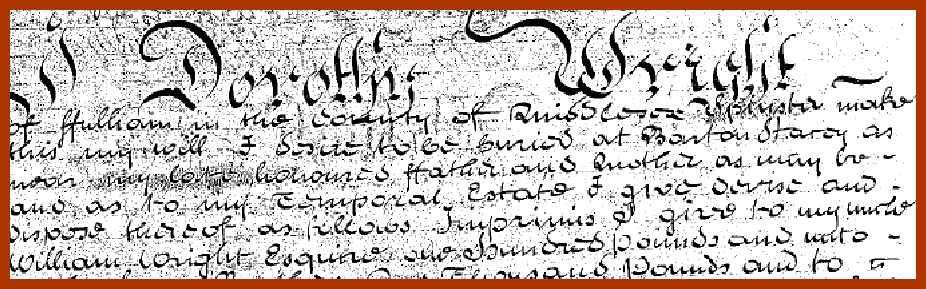 I Dorothy Wright
of ffulham in the County of Middlesex Spinster make
this my will I desire to be buried at Barton Stacey as
near my late honoured ffather and Mother as may be -
and as to my Temporal Estate I give devise and -
dispose thereof as ffollows Imprimis I give to my uncle
William Wright Esquire one Hundred pounds and unto -
Thousand Pounds and to